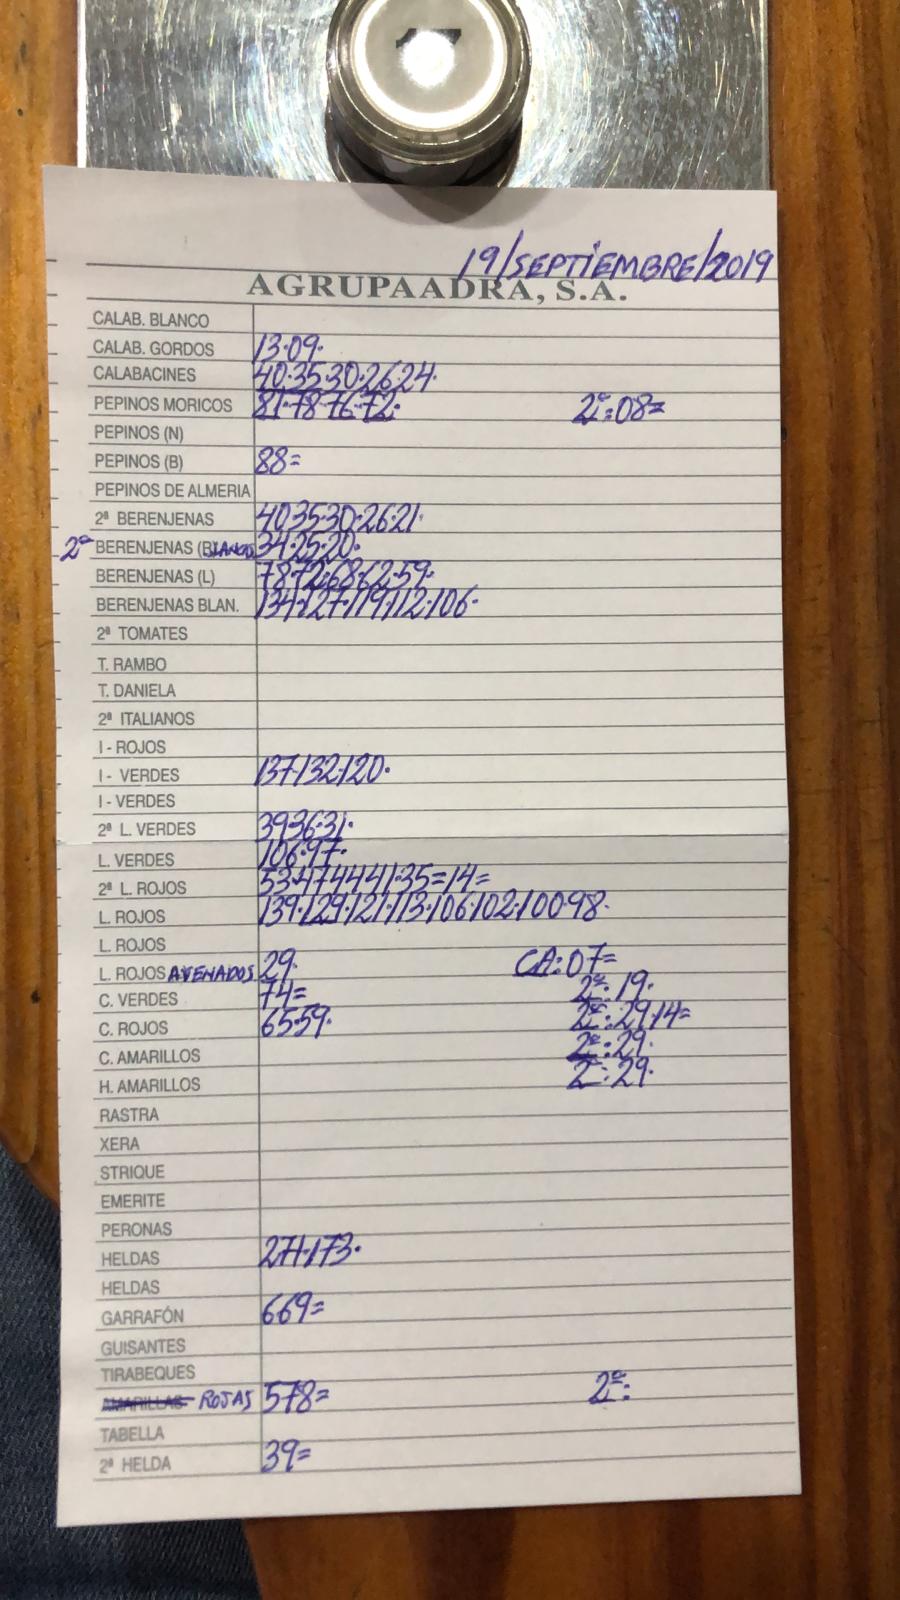 19/SEPTIEMBRE/2019
AGRUPAADRA, S.A.
CALAB. BLANCO
CALAB. GORDOS 13.09.
CALABACINES 40.35.30.26.24.
PEPINOS MORICOS 81.78.76.72. 2ª:08=
PEPINOS (N)
PEPINOS (B) 88=
PEPINOS DE ALMERIA
2ª BERENJENAS 40.35.30.26.21.
2ª BERENJENAS (BLANCO 34.25.20.
BERENJENAS (L) 78.72.68.62.59.
BERENJENAS BLAN. 134.127.119.112.106.
2ª TOMATES
T. RAMBO
T. DANIELA
2ª ITALIANOS
I - ROJOS
I - VERDES 137.132.120.
I - VERDES
2ª L. VERDES 39.36.31.
L. VERDES 106.97.
2ª L. ROJOS 53.47.44.41.35=14=
L. ROJOS 139.129.121.113.106.102.100.98.
L. ROJOS
L. ROJOS AVENADOS 29. CA:07=
C. VERDES 74= 2ª:19.
C. ROJOS 65.59. 2ª:29.14=
C. AMARILLOS 2ª:29.
H. AMARILLOS 2ª:29.
RASTRA
XERA
STRIQUE
EMERITE
PERONAS
HELDAS 271.173.
HELDAS
GARRAFÓN 669=
GUISANTES
TIRABEQUES
AMARILLAS ROJAS 578= 2ª:
TABELLA
2ª HELDA 39=